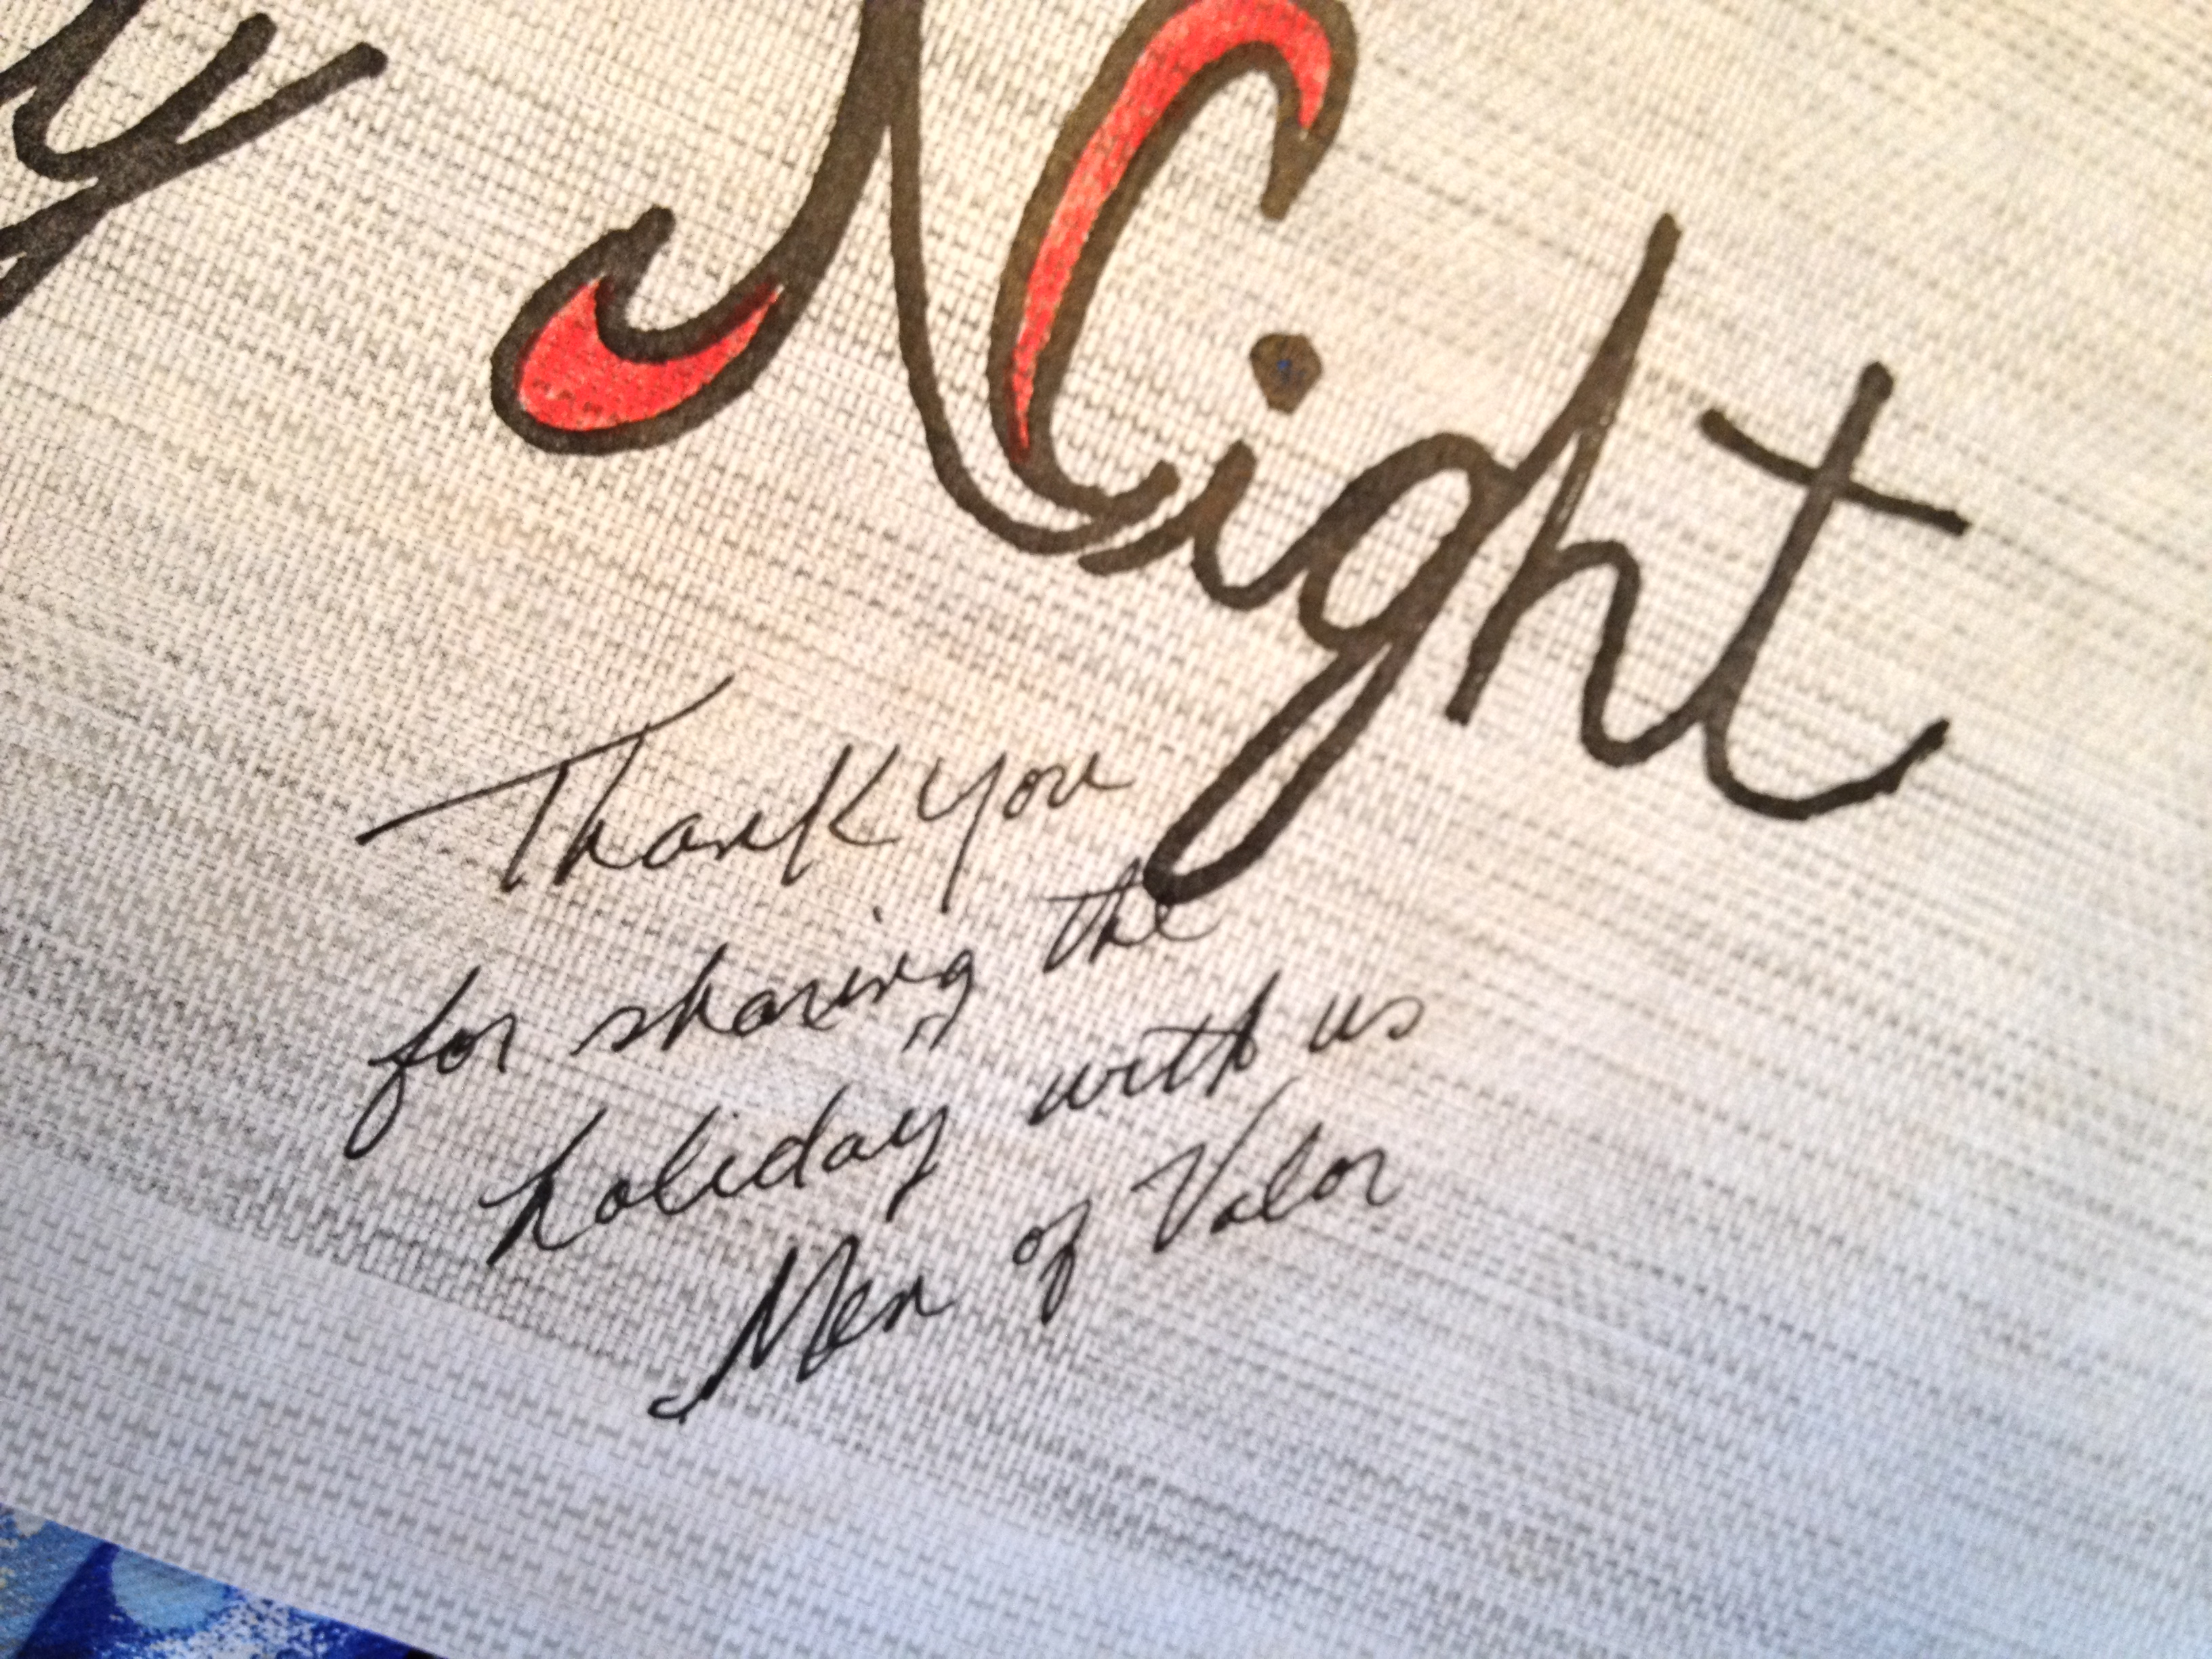 y Night
Thank you
for sharing the
holiday with us
Men of Valor